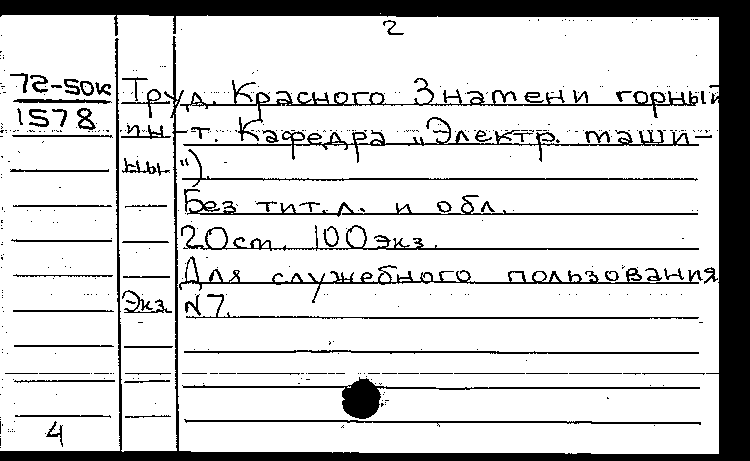 2
72-50к
1578
Труд. Красного Знамени горный
ин-т. Кафедра „Электр. маши-
ны").
Без тит.л. и обл.
20см. 100экз.
Для служебного пользования
Экз. N7.
4